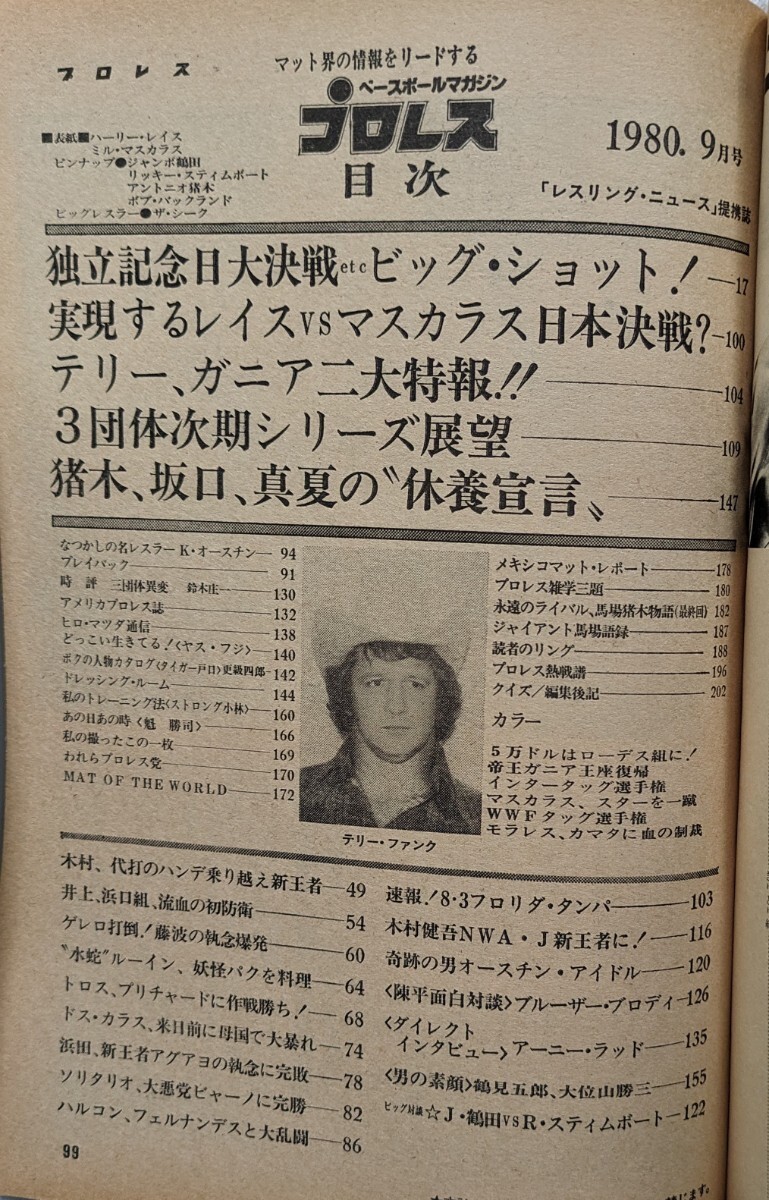 プロレス
マット界の情報をリードする
ベースボールマガジン
プロレス
目次
1980. 9月号
「レスリング・ニュース」提携誌
■表紙■ハーリー・レイス
ミル・マスカラス
ピンナップ●ジャンボ鶴田
リッキー・スティムボート
アントニオ猪木
ボブ・バックランド
ビッグレスラー●ザ・シーク
独立記念日大決戦etcビッグ・ショット!—17
実現するレイスvsマスカラス日本決戦?—100
テリー、ガニア二大特報!!—104
3団体次期シリーズ展望—109
猪木、坂口、真夏の〝休養宣言〟—147
なつかしの名レスラー K・オースチン—94
プレイバック—91
時評 三団体異変 鈴木庄一—130
アメリカプロレス誌—132
ヒロ・マツダ通信—138
どっこい生きてる!〈ヤス・フジ〉—140
ボクの人物カタログ〈タイガー戸口〉更級四郎—142
ドレッシング・ルーム—144
私のトレーニング法〈ストロング小林〉—160
あの日あの時〈魁 勝司〉—166
私の撮ったこの一枚—169
われらプロレス党—170
MAT OF THE WORLD—172
テリー・ファンク
メキシコマット・レポート—178
プロレス雑学三題—180
永遠のライバル、馬場猪木物語(最終回) 182
ジャイアント馬場語録—187
読者のリング—188
プロレス熱戦譜—196
クイズ/編集後記—202
カラー
5万ドルはローデス組に!
帝王ガニア王座復帰
インタータッグ選手権
マスカラス、スターを一蹴
WWFタッグ選手権
モラレス、カマタに血の制裁
木村、代打のハンデ乗り越え新王者—49
井上、浜口組、流血の初防衛—54
ゲレロ打倒!藤波の執念爆発—60
〝水蛇〟ルーイン、妖怪パクを料理—64
トロス、プリチャードに作戦勝ち!—68
ドス・カラス、来日前に母国で大暴れ—74
浜田、新王者アグアヨの執念に完敗—78
ソリタリオ、大悪党ビャーノに完勝—82
ハルコン、フェルナンデスと大乱闘—86
速報!8・3フロリダ・タンパ—103
木村健吾NWA・J新王者に!—116
奇跡の男オースチン・アイドル—120
〈陳平面白対談〉ブルーザー・ブロディ—126
〈ダイレクト
インタビュー〉アーニー・ラッド—135
〈男の素顔〉鶴見五郎、大位山勝三—155
ビッグ対談☆J・鶴田vsR・スティムボート—122
99